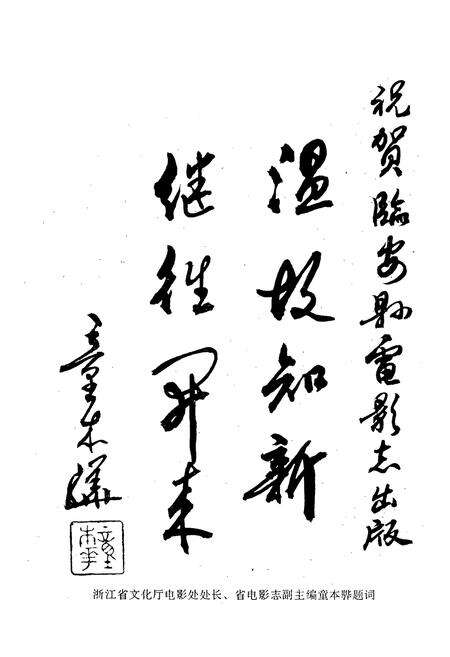 祝贺臨安縣電影志出版
温故知新
继往開来
童本驊
浙江省文化厅电影处处长、省电影志副主编童本骅题词